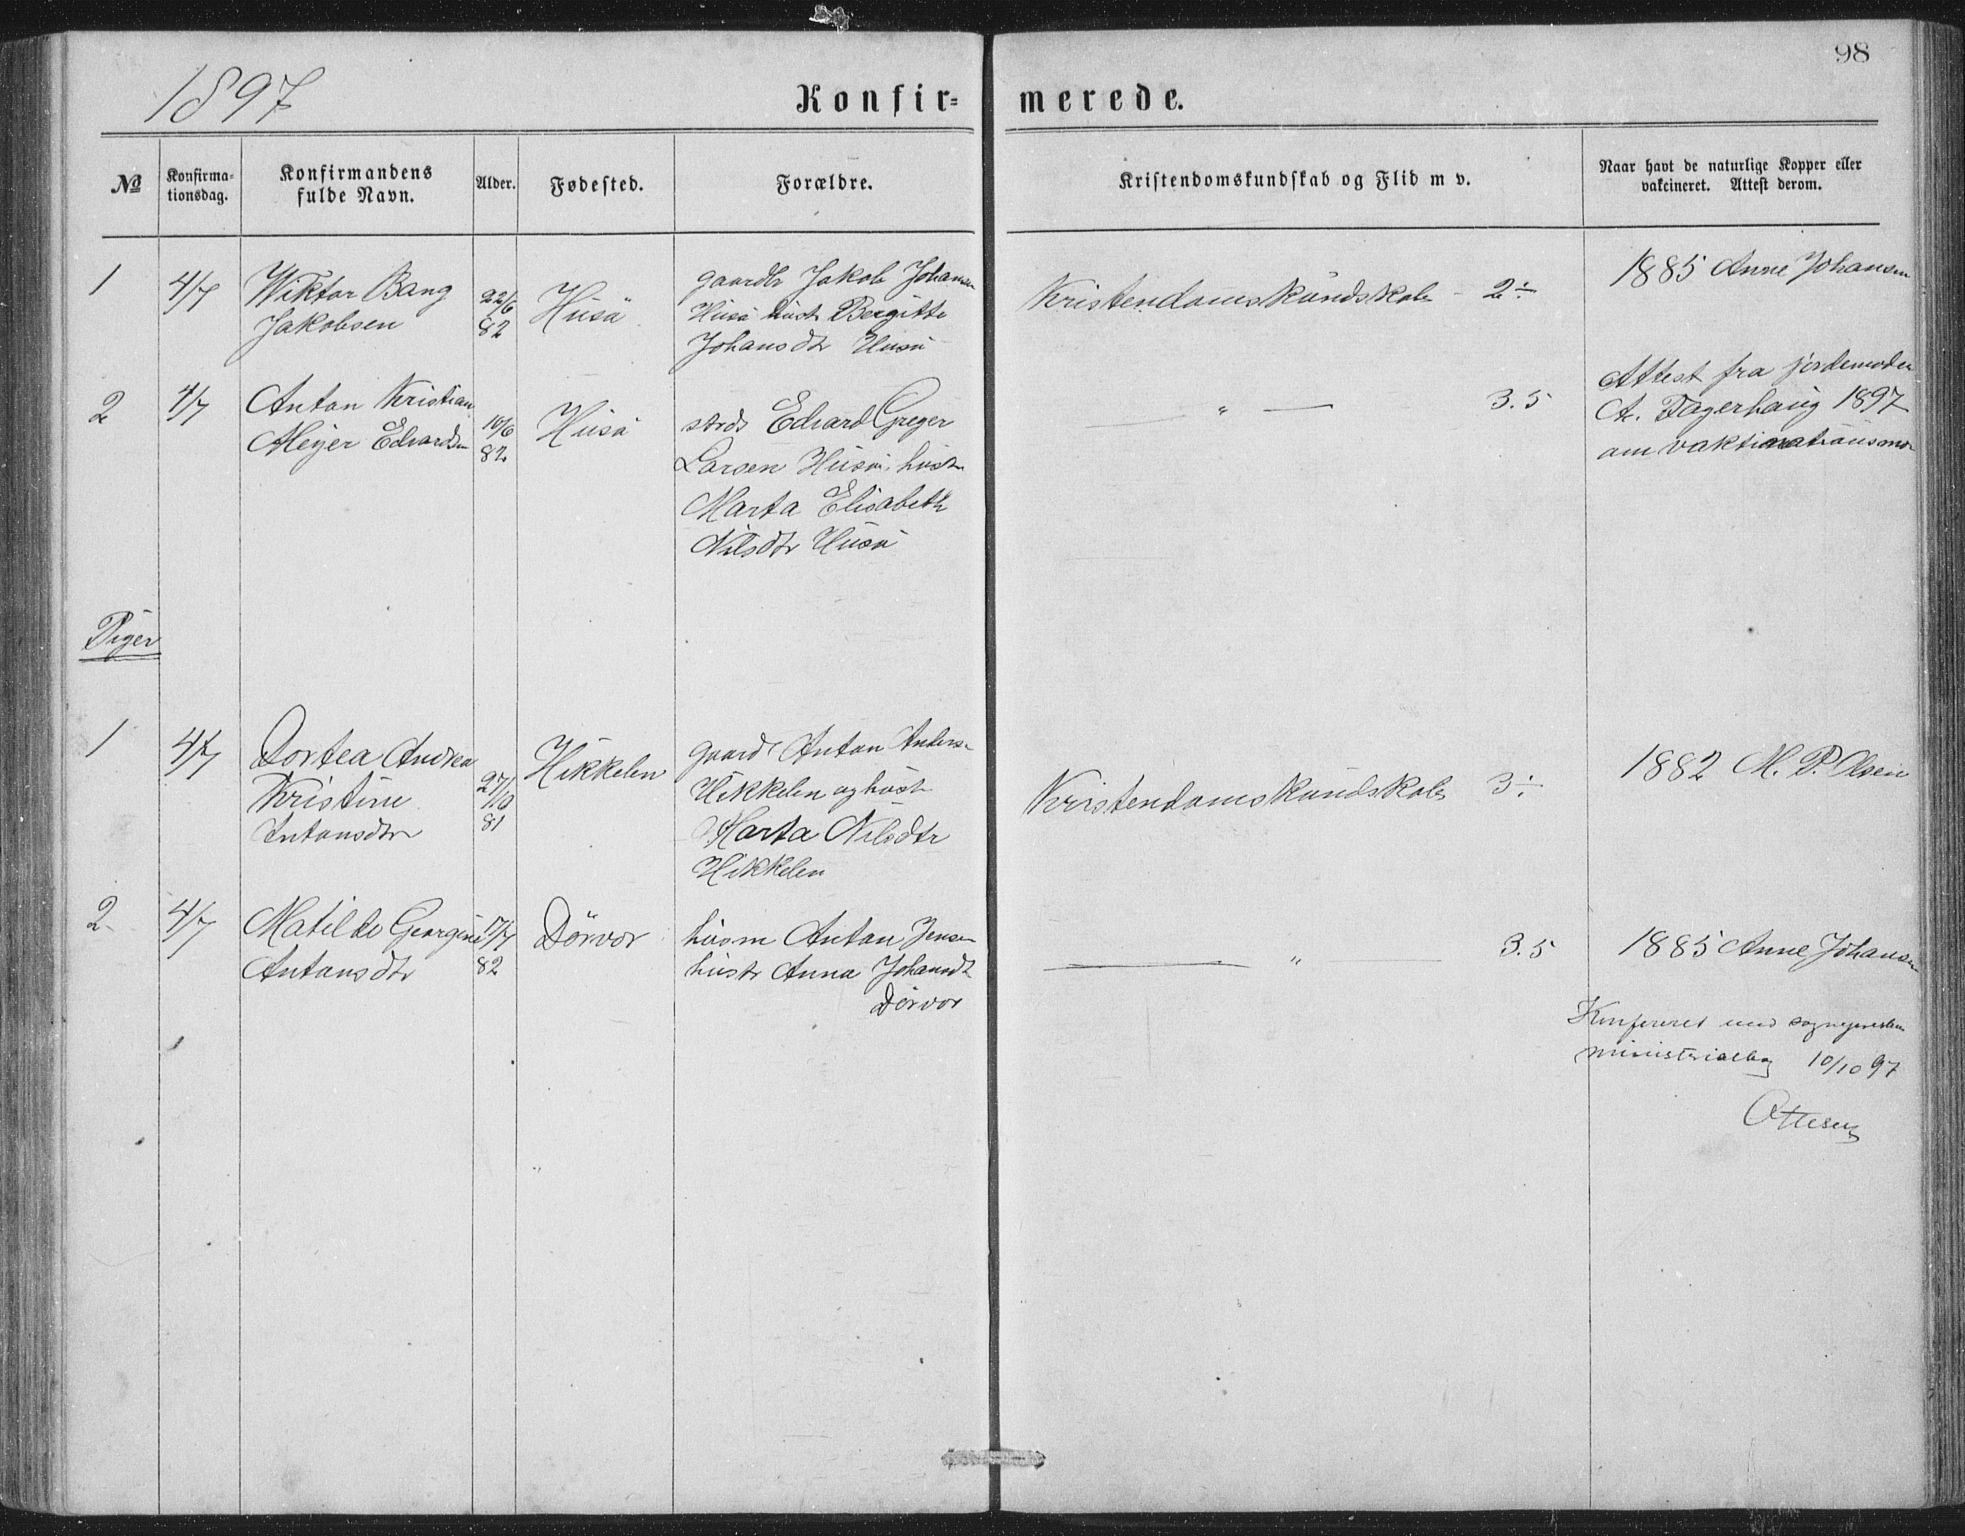 98
1897
Konfir- merede.
№ Konfirma-tionsdag. Konfirmandens fulde Navn. Alder. Fødested. Forældre. Kristendomskundskab og Flid m v. Naar havt de naturlige Kopper eller vakcineret. Attest derom.
1 4/7 Wiktor Bang 22/6 Husö gaardbr Jakob Johansen Kristendomskundskab 2÷ 1885 Anne Johansen
Jakobsen 82 Husö hustr Bergitte
Johansdtr Husö
2 4/7 Anton Kristian 10/6 Husö strds Edvard Greger " 3.5 Attest fra jordemoder
Meyer Edvardsen 82 Larsen Husö, hustr A. Dagerhaug 1897
Marta Elisabeth om
Nilsdtr Husö
Piger
1 4/7 Dortea Andrea 27/10 Hikkelen gaard Anton Anders. Kristendomskundskab 3÷ 1882 M. P. Olsen
Kristine 81 Hikkelen og hustr
Antonsdtr Marta Nilsdtr
Hikkelen
2 4/7 Matilde Georgine 17/7 Dörvor husm Anton Jensen " 3.5 1885 Anne Johansen
Antonsdtr 82 hustr Anna Johansdt
Dörvor
Konfereret med sogneprestens
ministerialbog 10/10 97
Ottesen